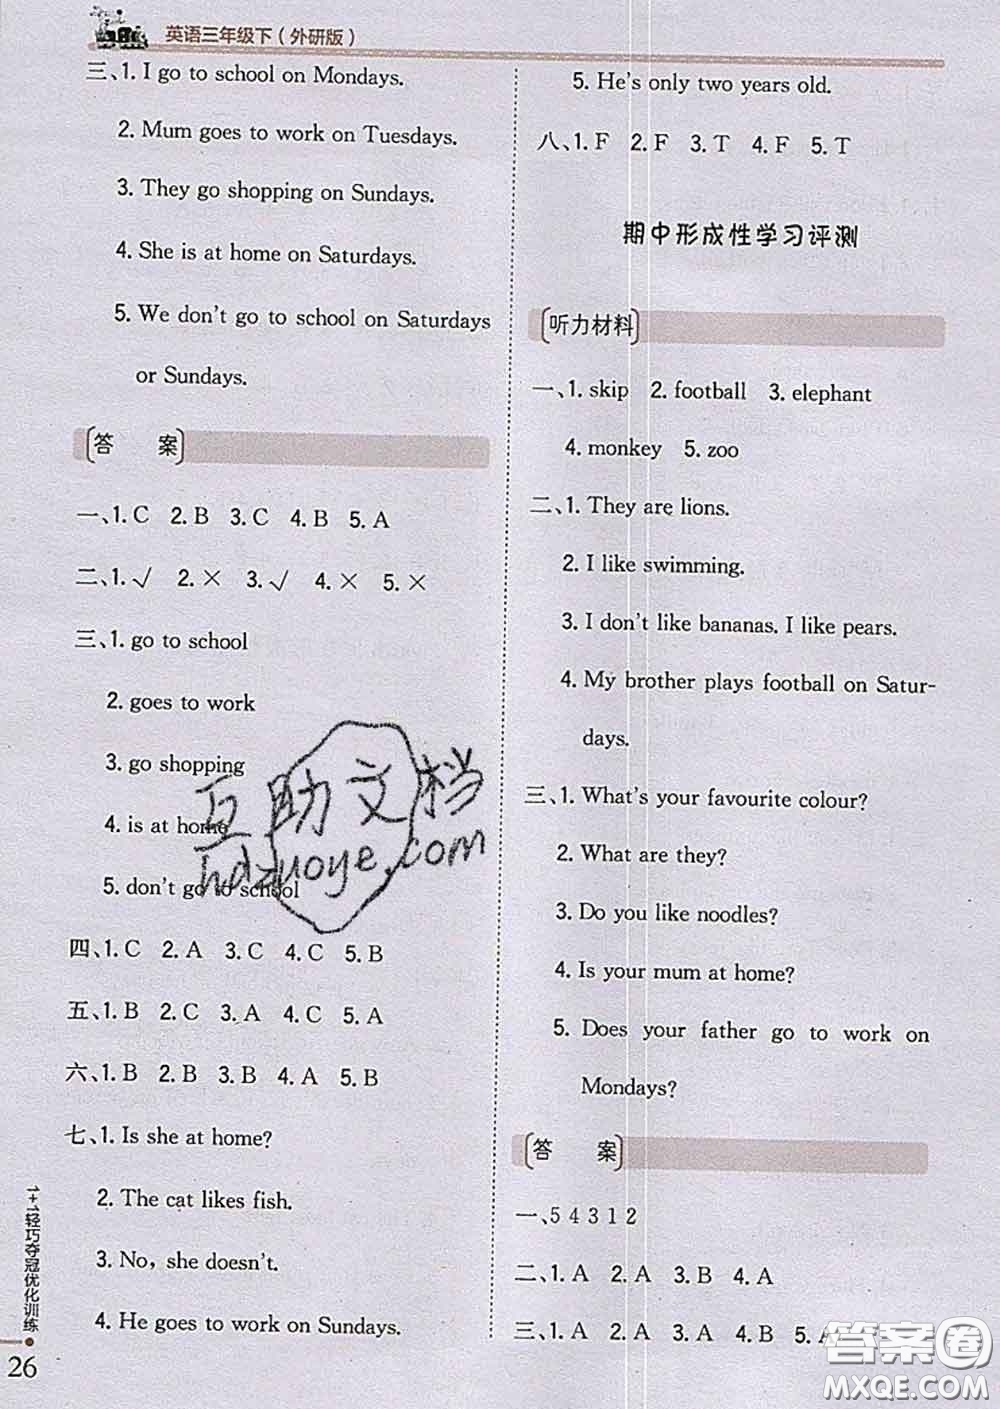 英语三年级下（外研版）
三、1. I go to school on Mondays.
2. Mum goes to work on Tuesdays.
3. They go shopping on Sundays.
4. She is at home on Saturdays.
5. We don't go to school on Saturdays
or Sundays.
答 案
一、1. C 2. B 3. C 4. B 5. A
二、1. √ 2. × 3. √ 4. × 5. ×
三、1. go to school
2. goes to work
3. go shopping
4. is at home
5. don't go to school
四、1. C 2. A 3. C 4. C 5. B
五、1. B 2. C 3. A 4. C 5. A
六、1. B 2. B 3. B 4. A 5. B
七、1. Is she at home?
2. The cat likes fish.
3. No, she doesn't.
4. He goes to work on Sundays.
5. He's only two years old.
八、1. F 2. F 3. T 4. F 5. T
期中形成性学习评测
听力材料
一、1. skip 2. football 3. elephant
4. monkey 5. zoo
二、1. They are lions.
2. I like swimming.
3. I don't like bananas. I like pears.
4. My brother plays football on Satur-
days.
三、1. What's your favourite colour?
2. What are they?
3. Do you like noodles?
4. Is your mum at home?
5. Does your father go to work on
Mondays?
答 案
一、5 4 3 1 2
二、1. A 2. A 3. B 4. A
三、1. A 2. A 3. A 4. B 5. A
1+1轻巧夺冠优化训练
26
互助文档
hdzuoye.com
答案圈
MXQE.COM